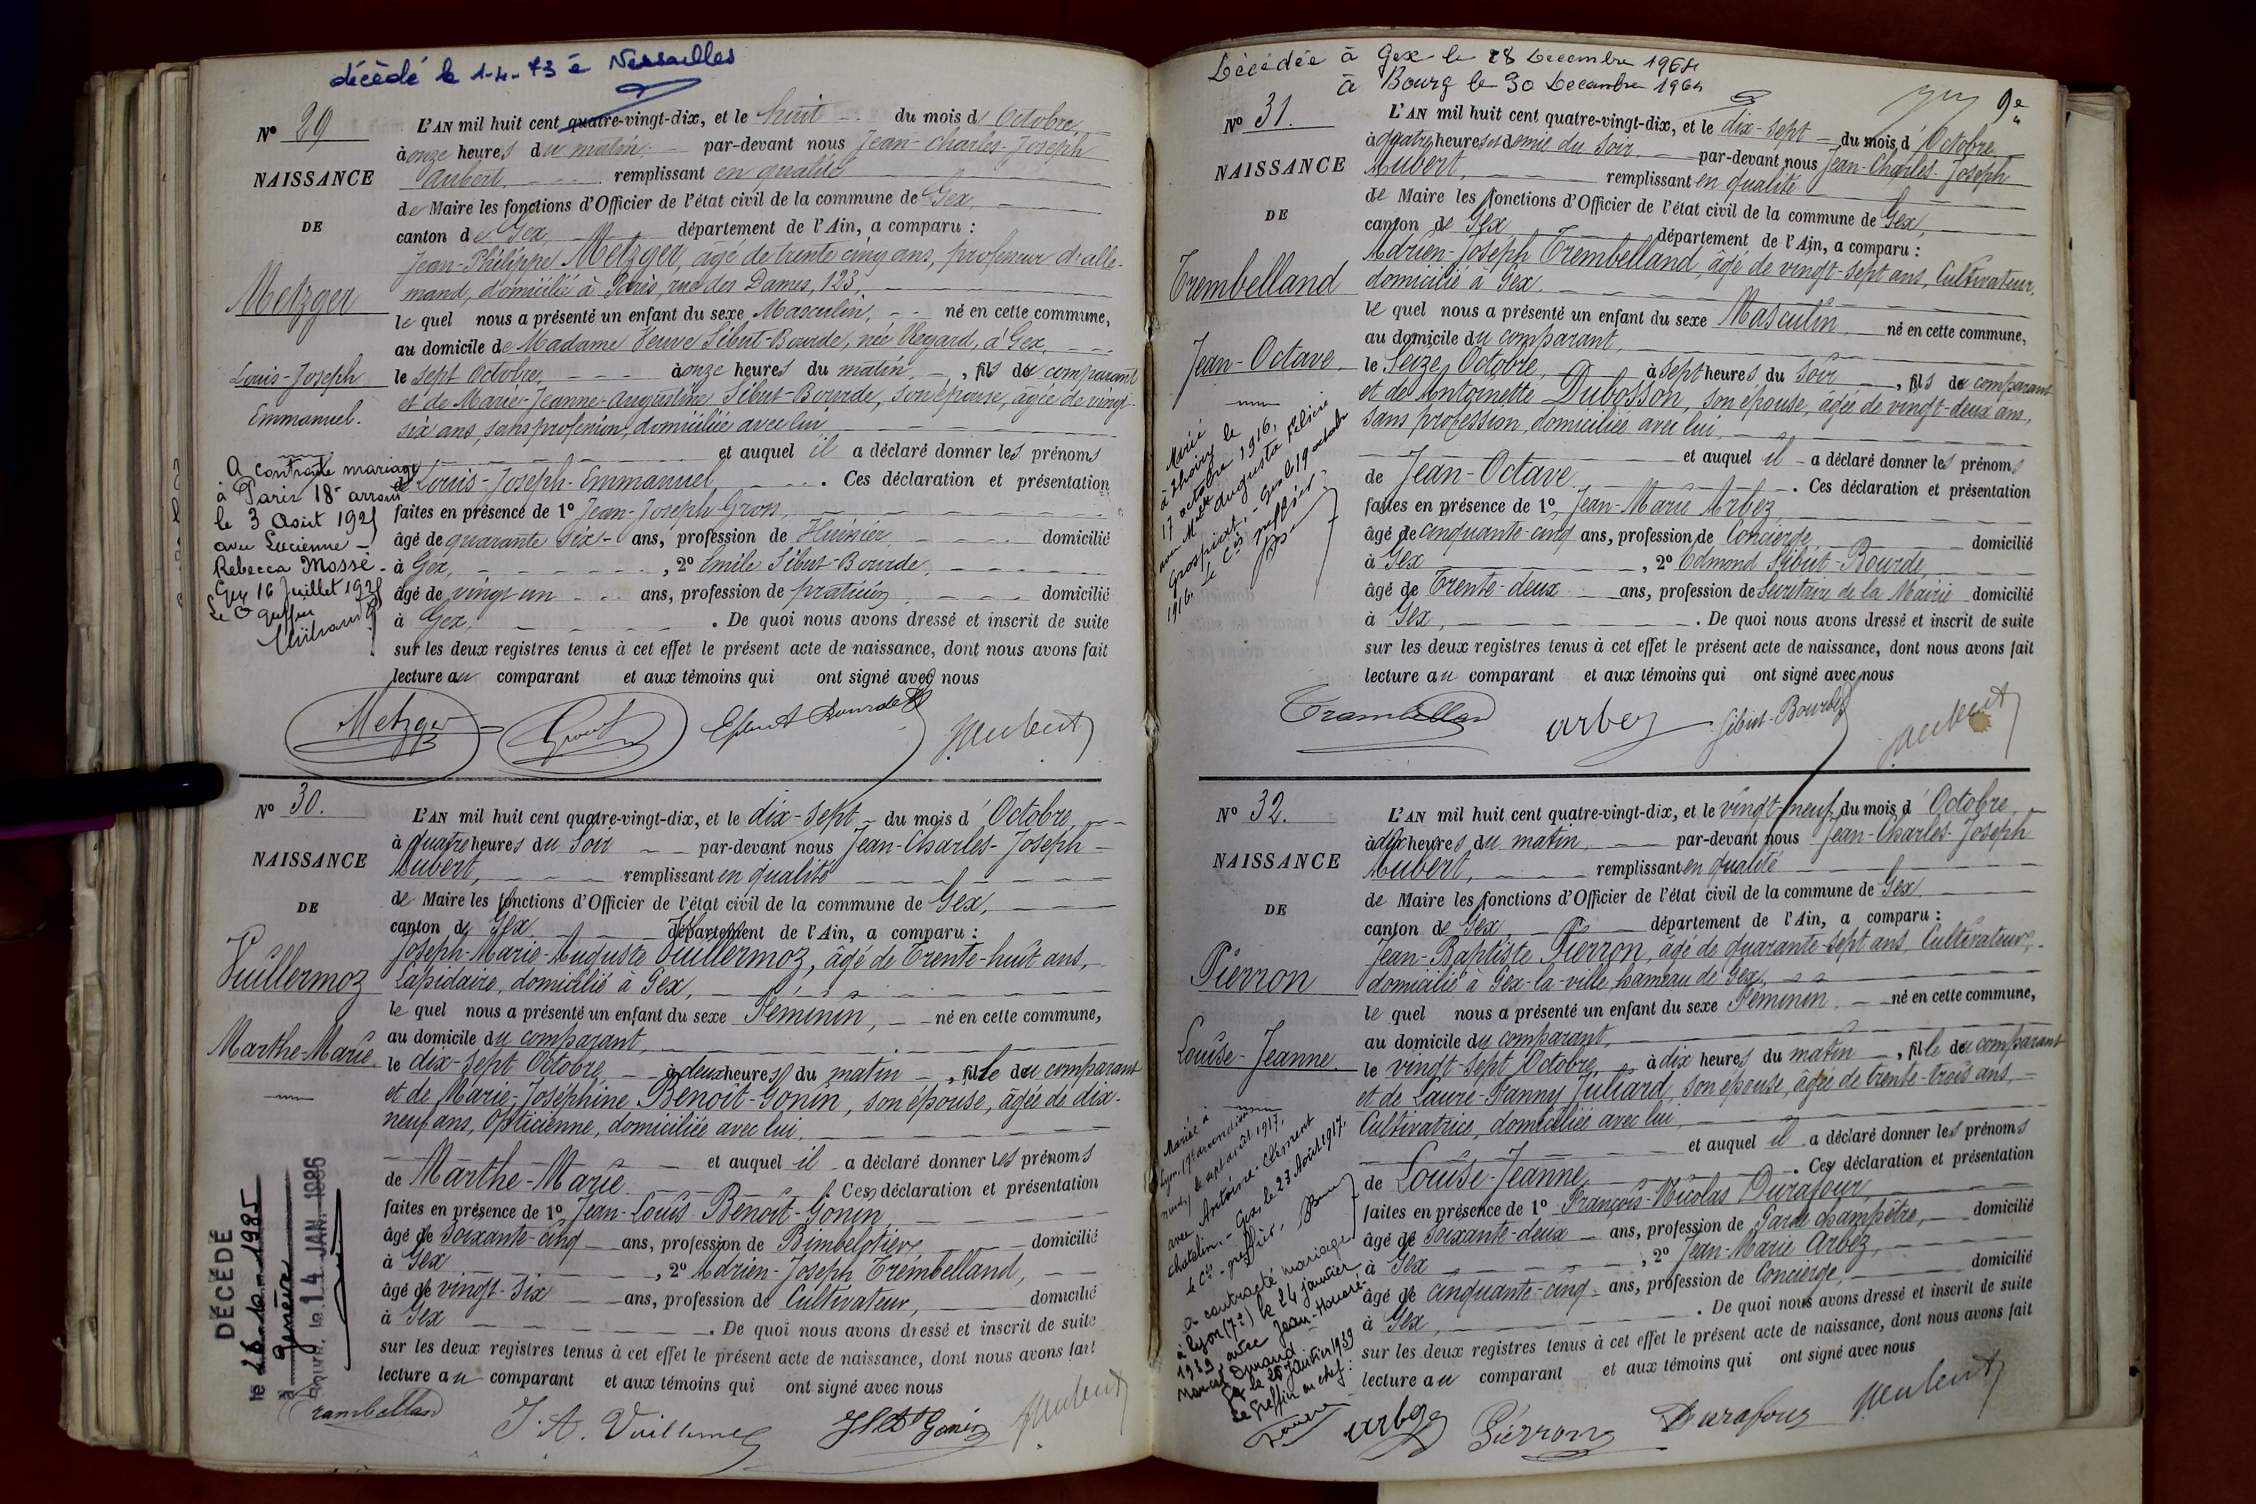 décédé le 1-4-73 à Versailles
Nº 29
NAISSANCE
DE
Metzger
Louis-Joseph
Emmanuel.
A contracté mariage
à Paris 18e arrond
le 3 Août 1921
avec Lucienne
Rebecca Mossé
Gex 16 Juillet 1921
Le Cs greffier
L'AN mil huit cent quatre-vingt-dix, et le huit du mois d'Octobre,
à onze heures du matin, par-devant nous Jean-Charles-Joseph
Aubert, remplissant en qualité
de Maire les fonctions d'Officier de l'état civil de la commune de Gex,
canton de Gex, département de l'Ain, a comparu :
Jean-Philippe Metzger, âgé de trente cinq ans, professeur d'alle-
mand, domicilié à Paris, rue des Dames, 123,
le quel nous a présenté un enfant du sexe Masculin, né en cette commune,
au domicile de Madame Veuve Sibut-Bourde, née Reyard, à Gex,
le sept Octobre, à onze heures du matin, fils du comparant
et de Marie-Jeanne-Augustine Sibut-Bourde, son épouse, âgée de vingt-
six ans, sans profession, domiciliée avec lui
et auquel il a déclaré donner les prénoms
de Louis-Joseph-Emmanuel, . Ces déclaration et présentation
faites en présence de 1º Jean-Joseph Gros,
âgé de quarante six ans, profession de Huissier, domicilié
à Gex, , 2º Emile Sibut-Bourde,
âgé de vingt un ans, profession de praticien, domicilié
à Gex, . De quoi nous avons dressé et inscrit de suite
sur les deux registres tenus à cet effet le présent acte de naissance, dont nous avons fait
lecture au comparant et aux témoins qui ont signé avec nous
Metzger Gros ESibut Bourde JAubert
Nº 30.
NAISSANCE
DE
Vuillermoz
Marthe-Marie.
DÉCÉDÉ
le 26.10.1985
à Genève
le 14 JAN. 1986
L'AN mil huit cent quatre-vingt-dix, et le dix-sept du mois d'Octobre
à quatre heures du Soir par-devant nous Jean-Charles-Joseph
Aubert, remplissant en qualité
de Maire les fonctions d'Officier de l'état civil de la commune de Gex,
canton de Gex, département de l'Ain, a comparu :
Joseph-Marie-Auguste Vuillermoz, âgé de Trente-huit ans,
Lapidaire, domicilié à Gex,
le quel nous a présenté un enfant du sexe Féminin, né en cette commune,
au domicile du comparant,
le dix-sept Octobre à deux heures du matin, fille du comparant
et de Marie-Joséphine Benoit-Gonin, son épouse, âgée de dix-
neuf ans, Opticienne, domiciliée avec lui,
et auquel il a déclaré donner les prénoms
de Marthe-Marie . Ces déclaration et présentation
faites en présence de 1º Jean-Louis Benoit-Gonin,
âgé de Soixante-cinq ans, profession de Bimbelotier, domicilié
à Gex , 2º Adrien-Joseph Trembelland,
âgé de vingt-six ans, profession de Cultivateur, domicilié
à Gex . De quoi nous avons dressé et inscrit de suite
sur les deux registres tenus à cet effet le présent acte de naissance, dont nous avons fait
lecture au comparant et aux témoins qui ont signé avec nous
Trambellan J. A. Vuillermoz JLBt Gonin JAubert
Décédée à Gex le 28 Decembre 1964
à Bourg le 30 Decembre 1964
9e
Nº 31.
NAISSANCE
DE
Trembelland
Jean-Octave
Marié
à Thoiry le
17 octobre 1916,
avec Melle Augusta Félicie
Grospiron. - Gex le 19 octobre
1916. Le Cs greffier :
L'AN mil huit cent quatre-vingt-dix, et le dix-sept du mois d'Octobre
à quatre heures et demie du Soir, par-devant nous Jean-Charles-Joseph
Aubert, remplissant en qualité
de Maire les fonctions d'Officier de l'état civil de la commune de Gex,
canton de Gex département de l'Ain, a comparu :
Adrien-Joseph Trembelland, âgé de vingt-sept ans, Cultivateur,
domicilié à Gex,
le quel nous a présenté un enfant du sexe Masculin né en cette commune,
au domicile du comparant,
le Seize Octobre, à sept heures du Soir, fils du comparant
et de Antoinette Dubosson, son épouse, âgée de vingt-deux ans,
sans profession, domiciliée avec lui,
et auquel il a déclaré donner les prénoms
de Jean-Octave . Ces déclaration et présentation
faites en présence de 1º Jean-Marie Arbez
âgé de cinquante-cinq ans, profession de Concierge, domicilié
à Gex , 2º Edmond Sibut-Bourde,
âgé de Trente-deux ans, profession de Secrétaire de la Mairie domicilié
à Gex, . De quoi nous avons dressé et inscrit de suite
sur les deux registres tenus à cet effet le présent acte de naissance, dont nous avons fait
lecture au comparant et aux témoins qui ont signé avec nous
Trambellan arbez Sibut-Bourde JAubert
Nº 32.
NAISSANCE
DE
Pierron
Louise-Jeanne
Mariée à
Lyon, (7e arrondisse-
ment) le sept août 1917,
avec Antoine-Clément
Chatelin. - Gex, le 23 Août 1917.
le Cs - greffier,
a contracté mariage
à Lyon (7e) le 24 janvier
1939 avec Jean-Honoré-
Marius Durand.
Gex le 26 Janvier 1939
Le Greffier en chef :
L'AN mil huit cent quatre-vingt-dix, et le vingt-neuf du mois d'Octobre
à dix heures du matin, par-devant nous Jean-Charles-Joseph
Aubert, remplissant en qualité
de Maire les fonctions d'Officier de l'état civil de la commune de Gex
canton de Gex, département de l'Ain, a comparu :
Jean-Baptiste Pierron, âgé de quarante-sept ans, Cultivateur,
domicilié à Gex-la-ville, hameau de Gex,
le quel nous a présenté un enfant du sexe Féminin né en cette commune,
au domicile du comparant,
le vingt-sept Octobre, à dix heures du matin, fille du comparant
et de Laure-Fanny Julliard, son épouse, âgée de trente-trois ans,
Cultivatrice, domiciliée avec lui,
et auquel il a déclaré donner les prénoms
de Louise-Jeanne . Ces déclaration et présentation
faites en présence de 1º François-Nicolas Durafour,
âgé de Soixante-deux ans, profession de Garde champêtre, domicilié
à Gex , 2º Jean-Marie Arbez,
âgé de cinquante-cinq ans, profession de Concierge, domicilié
à Gex, . De quoi nous avons dressé et inscrit de suite
sur les deux registres tenus à cet effet le présent acte de naissance, dont nous avons fait
lecture au comparant et aux témoins qui ont signé avec nous
arbez Pierron Durafour JAubert